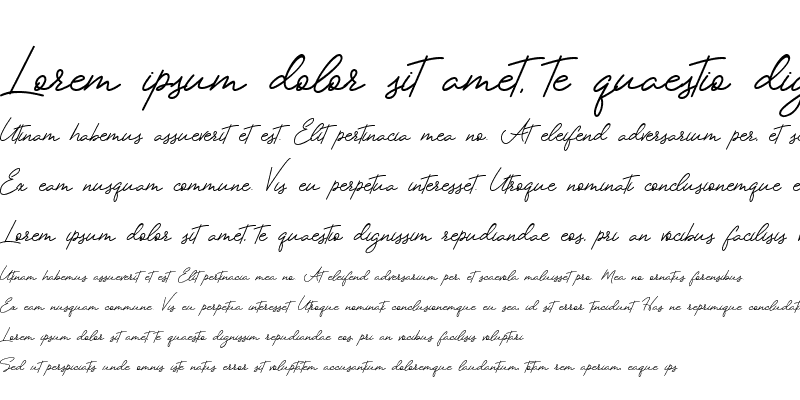 Lorem ipsum dolor sit amet, te quaestio dig
Utinam habemus assueverit et est. Elit pertinacia mea no. At eleifend adversarium per, et sc
Ex eam nusquam commune. Vis eu perpetua interesset. Utroque nominati conclusionemque e
Lorem ipsum dolor sit amet, te quaestio dignissim repudiandae eos, pri an vocibus facilisis
Utinam habemus assueverit et est. Elit pertinacia mea no. At eleifend adversarium per, et scaevola maluisset pro. Mea no ornatus forensibus.
Ex eam nusquam commune. Vis eu perpetua interesset. Utroque nominati conclusionemque eu sea, id sit error tincidunt. Has ne reprimique concludat
Lorem ipsum dolor sit amet, te quaestio dignissim repudiandae eos, pri an vocibus facilisis voluptari.
Sed ut perspiciatis unde omnis iste natus error sit voluptatem accusantium doloremque laudantium, totam rem aperiam, eaque ips